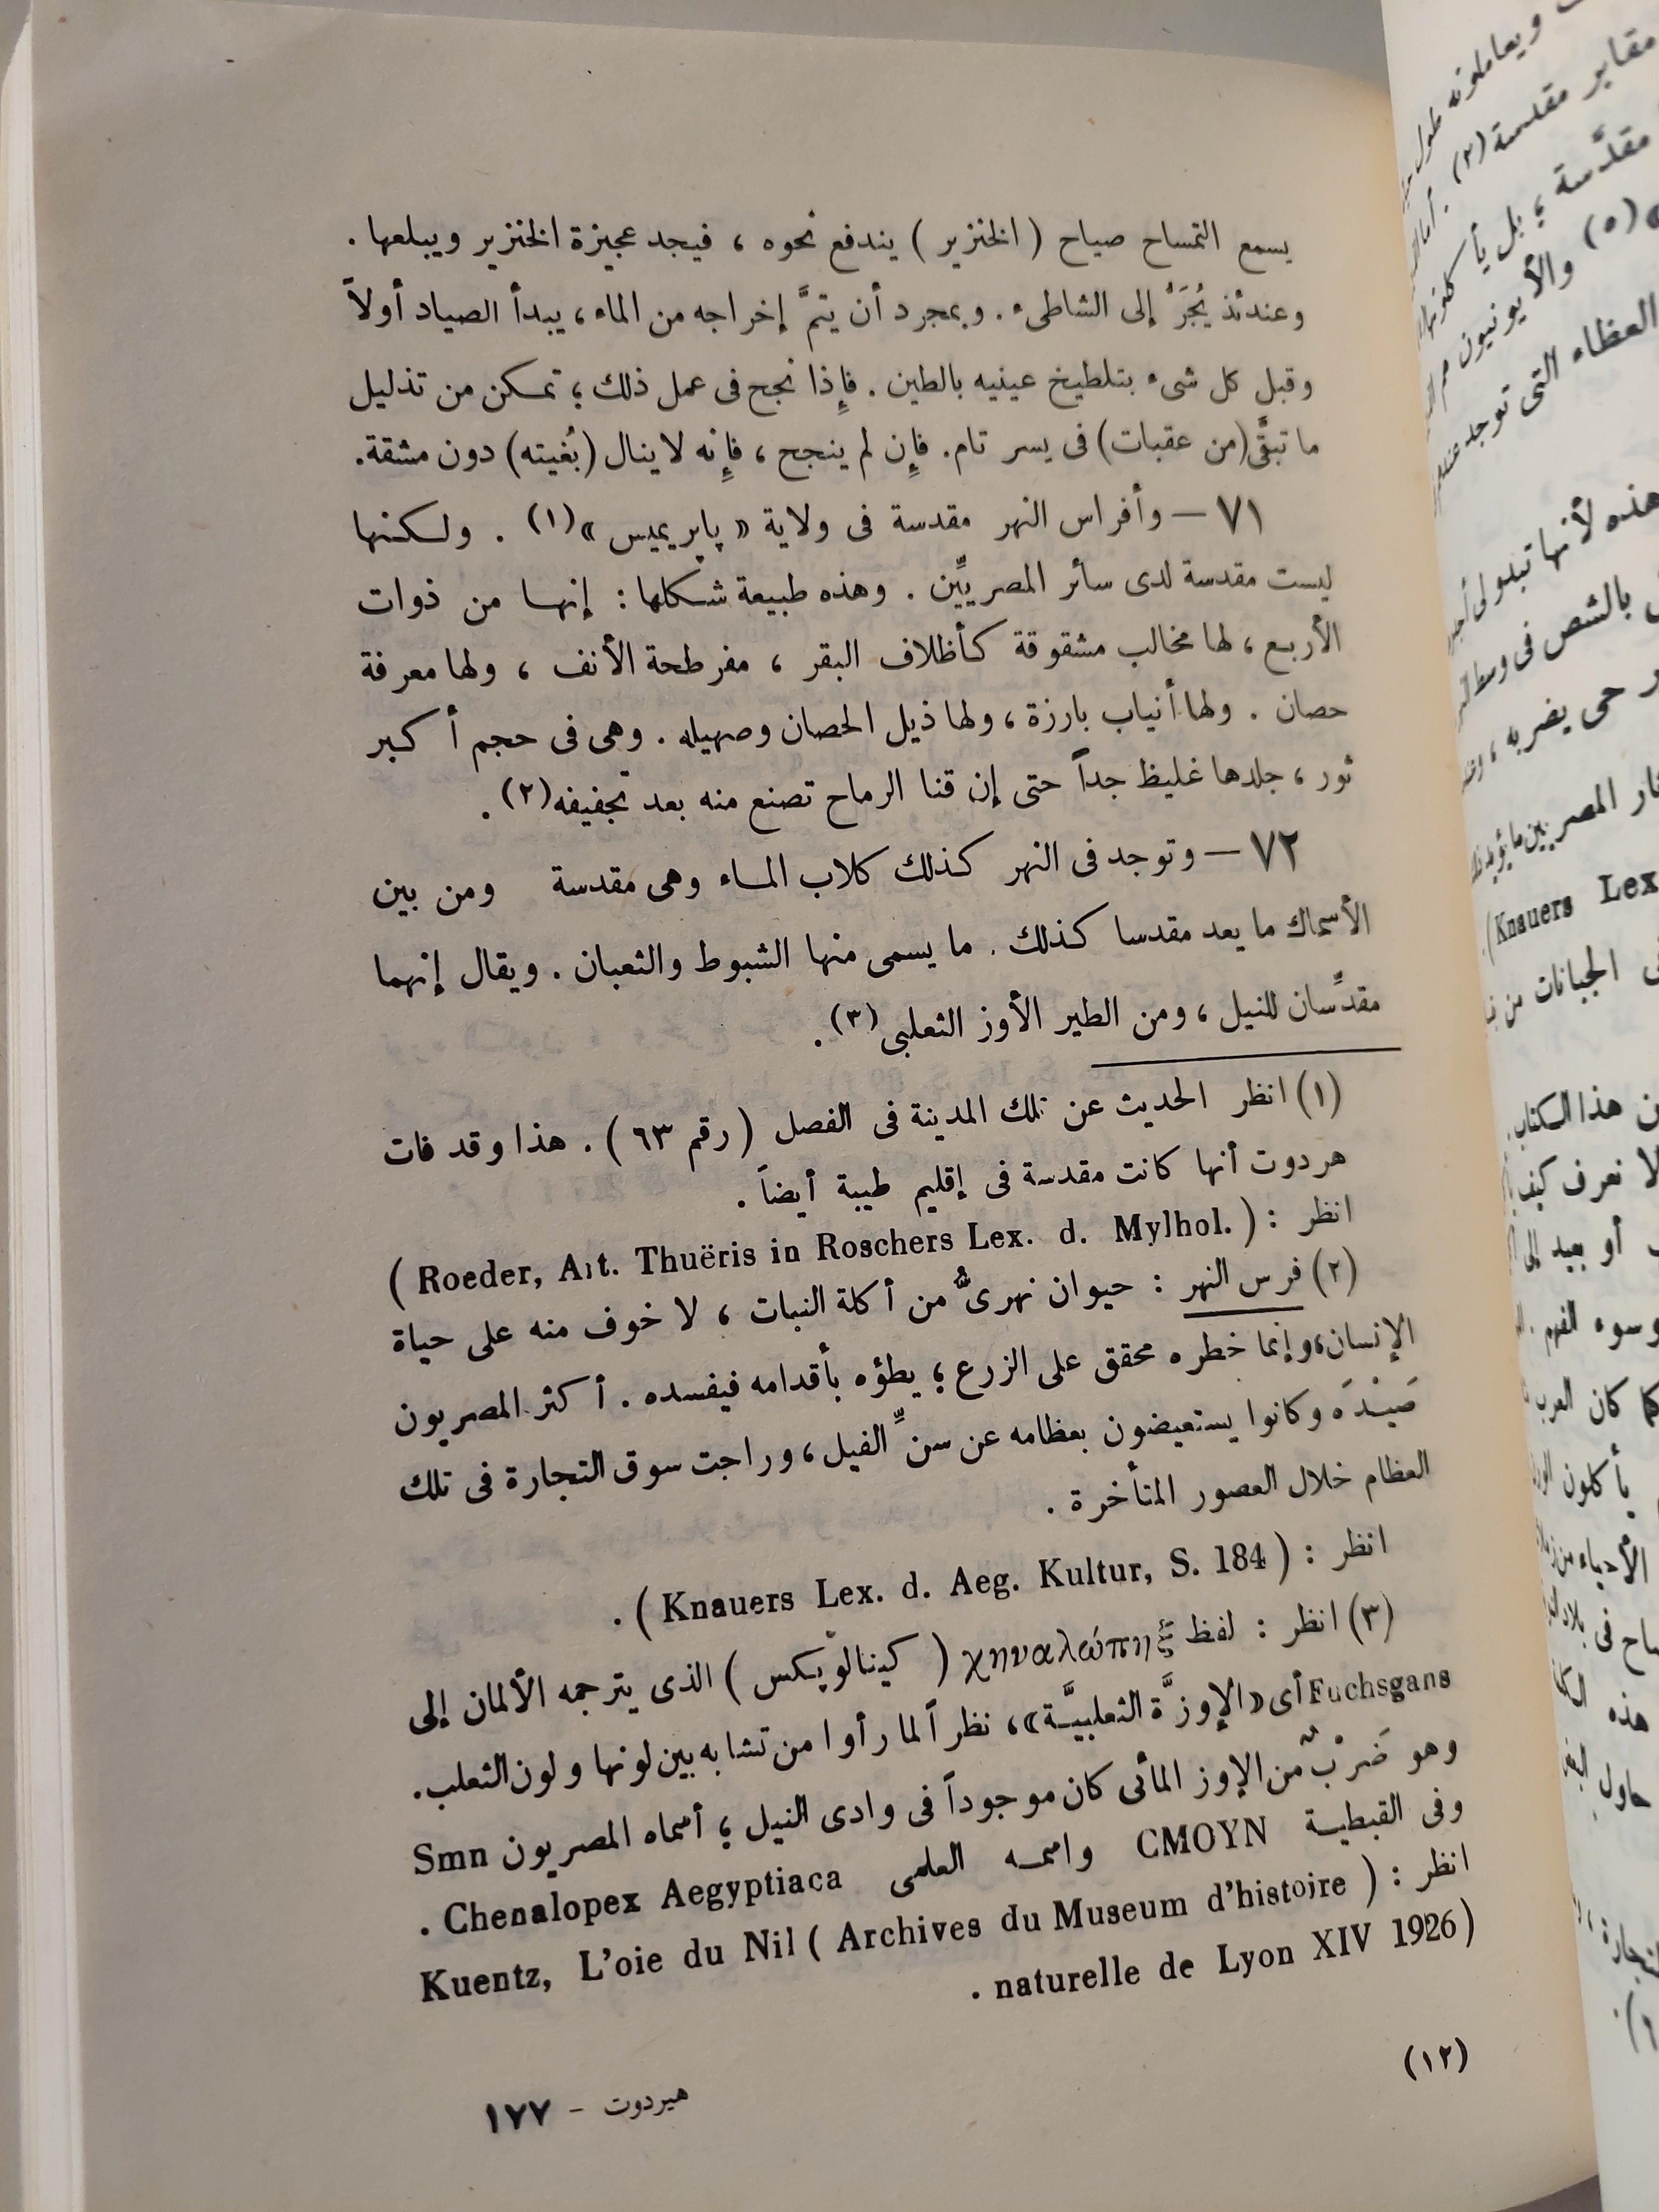 يسمع التمساح صياح ( الخنزير ) يندفع نحوه ، فيجد عجيزة الخنزير ويبلعها .
وعندئذ يُجَرُّ إلى الشاطىء . وبمجرد أن يتمَّ إخراجه من الماء ، يبدأ الصياد أولاً
وقبل كل شىء بتلطيخ عينيه بالطين . فإِذا نجح فى عمل ذلك ؛ تمكن من تذليل
ما تبقَّى (من عقبات) فى يسر تام . فإِن لم ينجح ، فإِنه لا ينال (بُغيته) دون مشقة.
٧١ – وأفراس النهر مقدسة فى ولاية « پاپريميس » (١) . ولكنها
ليست مقدسة لدى سائر المصريِّين . وهذه طبيعة شكلها : إنها من ذوات
الأربع ، لها مخالب مشقوقة كأظلاف البقر ، مفرطحة الأنف ، ولها معرفة
حصان . ولها أنياب بارزة ، ولها ذيل الحصان وصهيله . وهى فى حجم أكبر
ثور ، جلدها غليظ جداً حتى إن قنا الرماح تصنع منه بعد تجفيفه (٢) .
٧٢ – وتوجد فى النهر كذلك كلاب الماء وهى مقدسة ومن بين
الأسماك ما يعد مقدسا كذلك . ما يسمى منها الشبوط والثعبان . ويقال إنهما
مقدَّسان للنيل ، ومن الطير الأوز الثعلبى (٣) .
(١) انظر الحديث عن تلك المدينة فى الفصل ( رقم ٦٣ ) . هذا وقد فات
هردوت أنها كانت مقدسة فى إقليم طيبة أيضاً .
انظر : ( Roeder, Art. Thuëris in Roschers Lex. d. Mylhol. )
(٢) فرس النهر : حيوان نهرىٌّ من أكلة النبات ، لا خوف منه على حياة
الإنسان ، وإنما خطره محقق على الزرع ؛ يطؤه بأقدامه فيفسده . أكثر المصريون
صَيْدَه وكانوا يستعيضون بعظامه عن سنِّ الفيل ، وراجت سوق التجارة فى تلك
العظام خلال العصور المتأخرة .
انظر : ( Knauers Lex. d. Aeg. Kultur, S. 184 ) .
(٣) انظر : لفظ χηναλώπηξ ( كينالوپكس ) الذى يترجمه الألمان إلى
Fuchsgans أى « الإوزَّة الثعلبيَّة » ، نظراً لما رأوا من تشابه بين لونها ولون الثعلب.
وهو ضَرْبٌ من الإوز المائى كان موجوداً فى وادى النيل ؛ أسماه المصريون Smn
وفى القبطية CMOYN واسمه العلمى Chenalopex Aegyptiaca .
انظر : ( Kuentz, L'oie du Nil ( Archives du Museum d'histoire
naturelle de Lyon XIV 1926) .
(١٢)
هيردوت – ١٧٧
ويعاملونه طول
مقابر مقدسة (٢) .
مقدَّسة ؛ بل يأكلونها
(٥) والأيونيون هم
العظاء التى توجد
هذه لأنها تبدو لى
بالشص فى وسط
حى يضربه ،
المصريين ما يؤيد
(Knauers Lex
الجبانات من
هذا الكتاب .
لا نعرف كيف
أو بعيد إلى
وسوء الفهم .
كما كان العرب
يأكلون
الأحياء من
فى بلاد
هذه
حاول